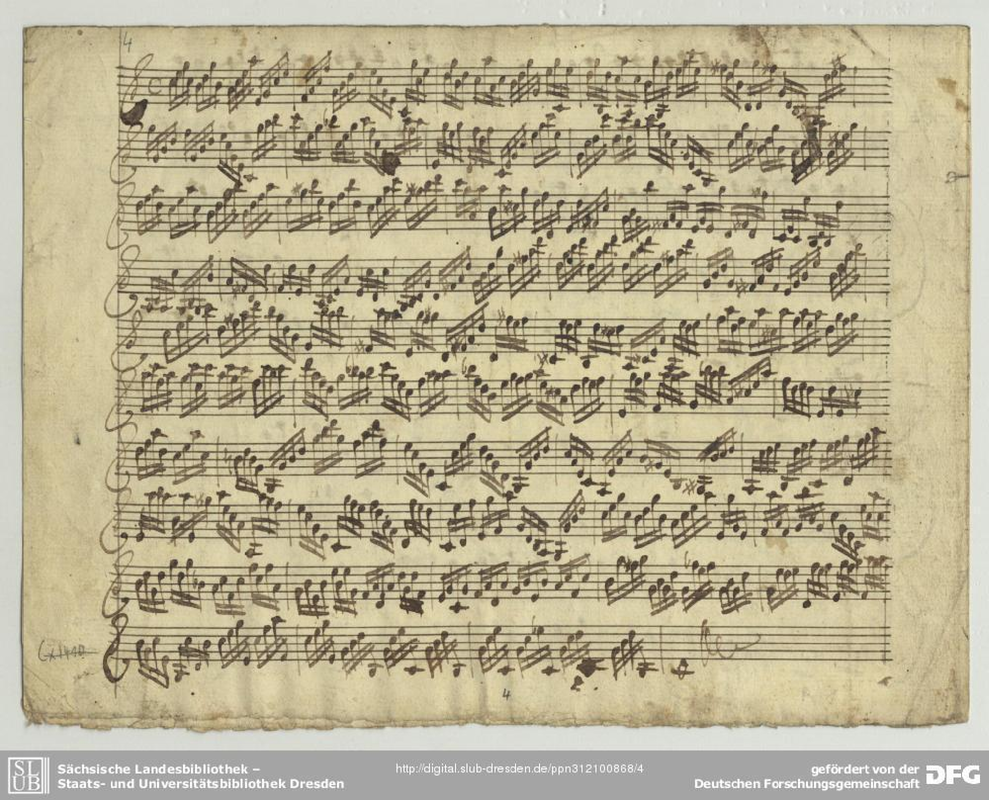 4
4
SLUB
Sächsische Landesbibliothek –
Staats- und Universitätsbibliothek Dresden
http://digital.slub-dresden.de/ppn312100868/4
gefördert von der
Deutschen Forschungsgemeinschaft
DFG